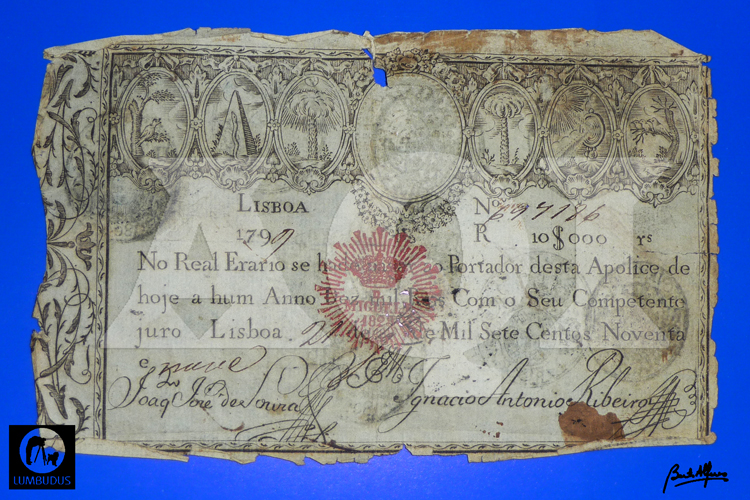 LISBOA Nº
1799 R 10$000 rs
No Real Erario se ao Portador desta Apolice, de
hoje a hum Anno Dez mil reis Com o Seu Competente
juro Lisboa 21 de Mil Sete Centos Noventa
e nove
Joaqm José de Souza Ignacio Antonio Ribeiro
MIGUEL I
1828
LUMBUDUS